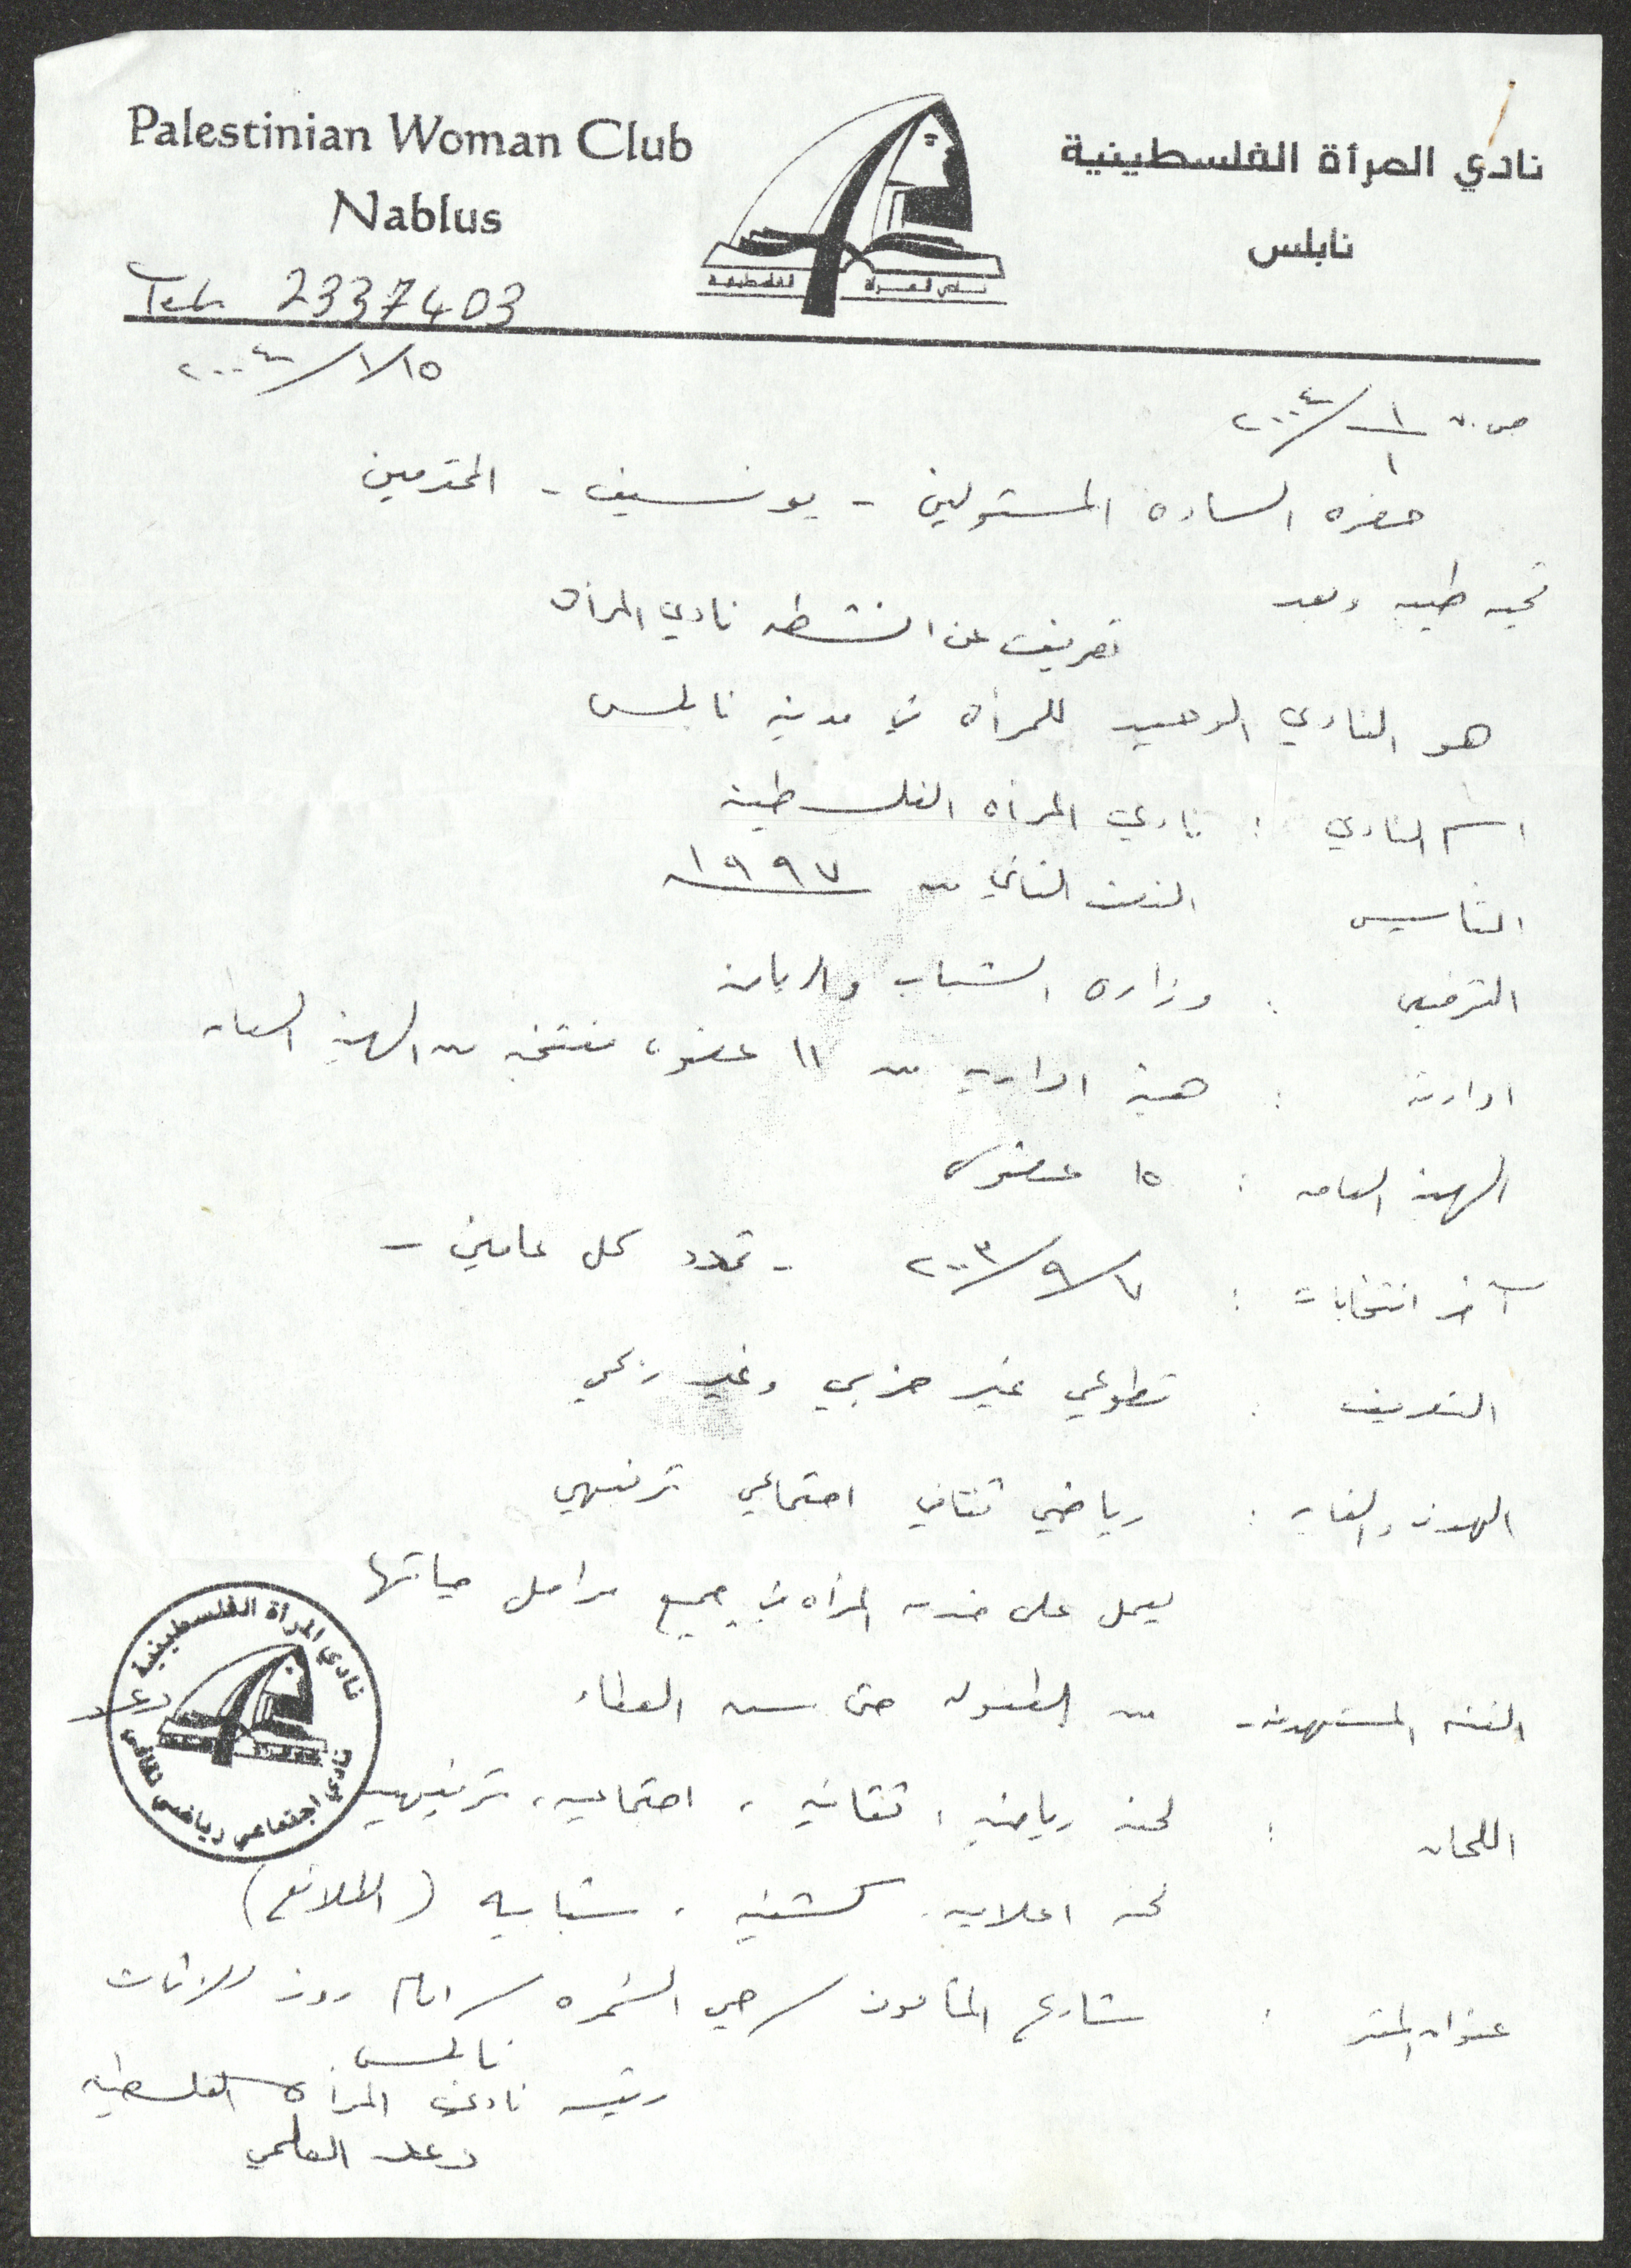 Palestinian Woman Club
Nablus
Tel. 2337403
نادي المرأة الفلسطينية
نابلس
نادي المرأة الفلسطينية
٢٠٠٤/١/١٥
٢٠٠٤/١/١
حضره الساده المسئولين - يونسيف - المحترمين
تحيه طيبه وبعد
تعريف عن انشطه نادي المرأه
هو النادي الوحيد للمرأه في مدينه نابلس
اسم النادي : نادي المرأه الفلسطينيه
التأسيس النصف الثاني من ١٩٩٧
الترخيص : وزاره الشباب والرياضه
ادارته : هيئه اداريه من ١١ عضوه منتخبه من الهيئه العامه
الهيئه العامه : ٦٥ عضوه
آخر انتخابات : ٢٠٠٣/٩/٧ - تجدد كل عامين -
التعريف : تطوعي غير حزبي وغير ربحي
الهدف والغايه : رياضي ثقافي اجتماعي ترفيهي
يعمل على خدمه المرأه في جميع مراحل حياتها
الفئه المستهدفه - من الطفوله حتى سن العطاء
اللجان : لجنه رياضيه ، ثقافيه ، اجتماعيه ، ترفيهيه
لجنه اعلاميه ، كشفيه ، شبابيه (الطلائع)
عنوان المقر : شارع المأمون / حي السمره / امام روز للاثاث
نابلس
رئيسه نادي المرأه الفلسطينيه
دعد العلمي
نادي المرأة الفلسطينية
نادي اجتماعي رياضي ثقافي
دعد